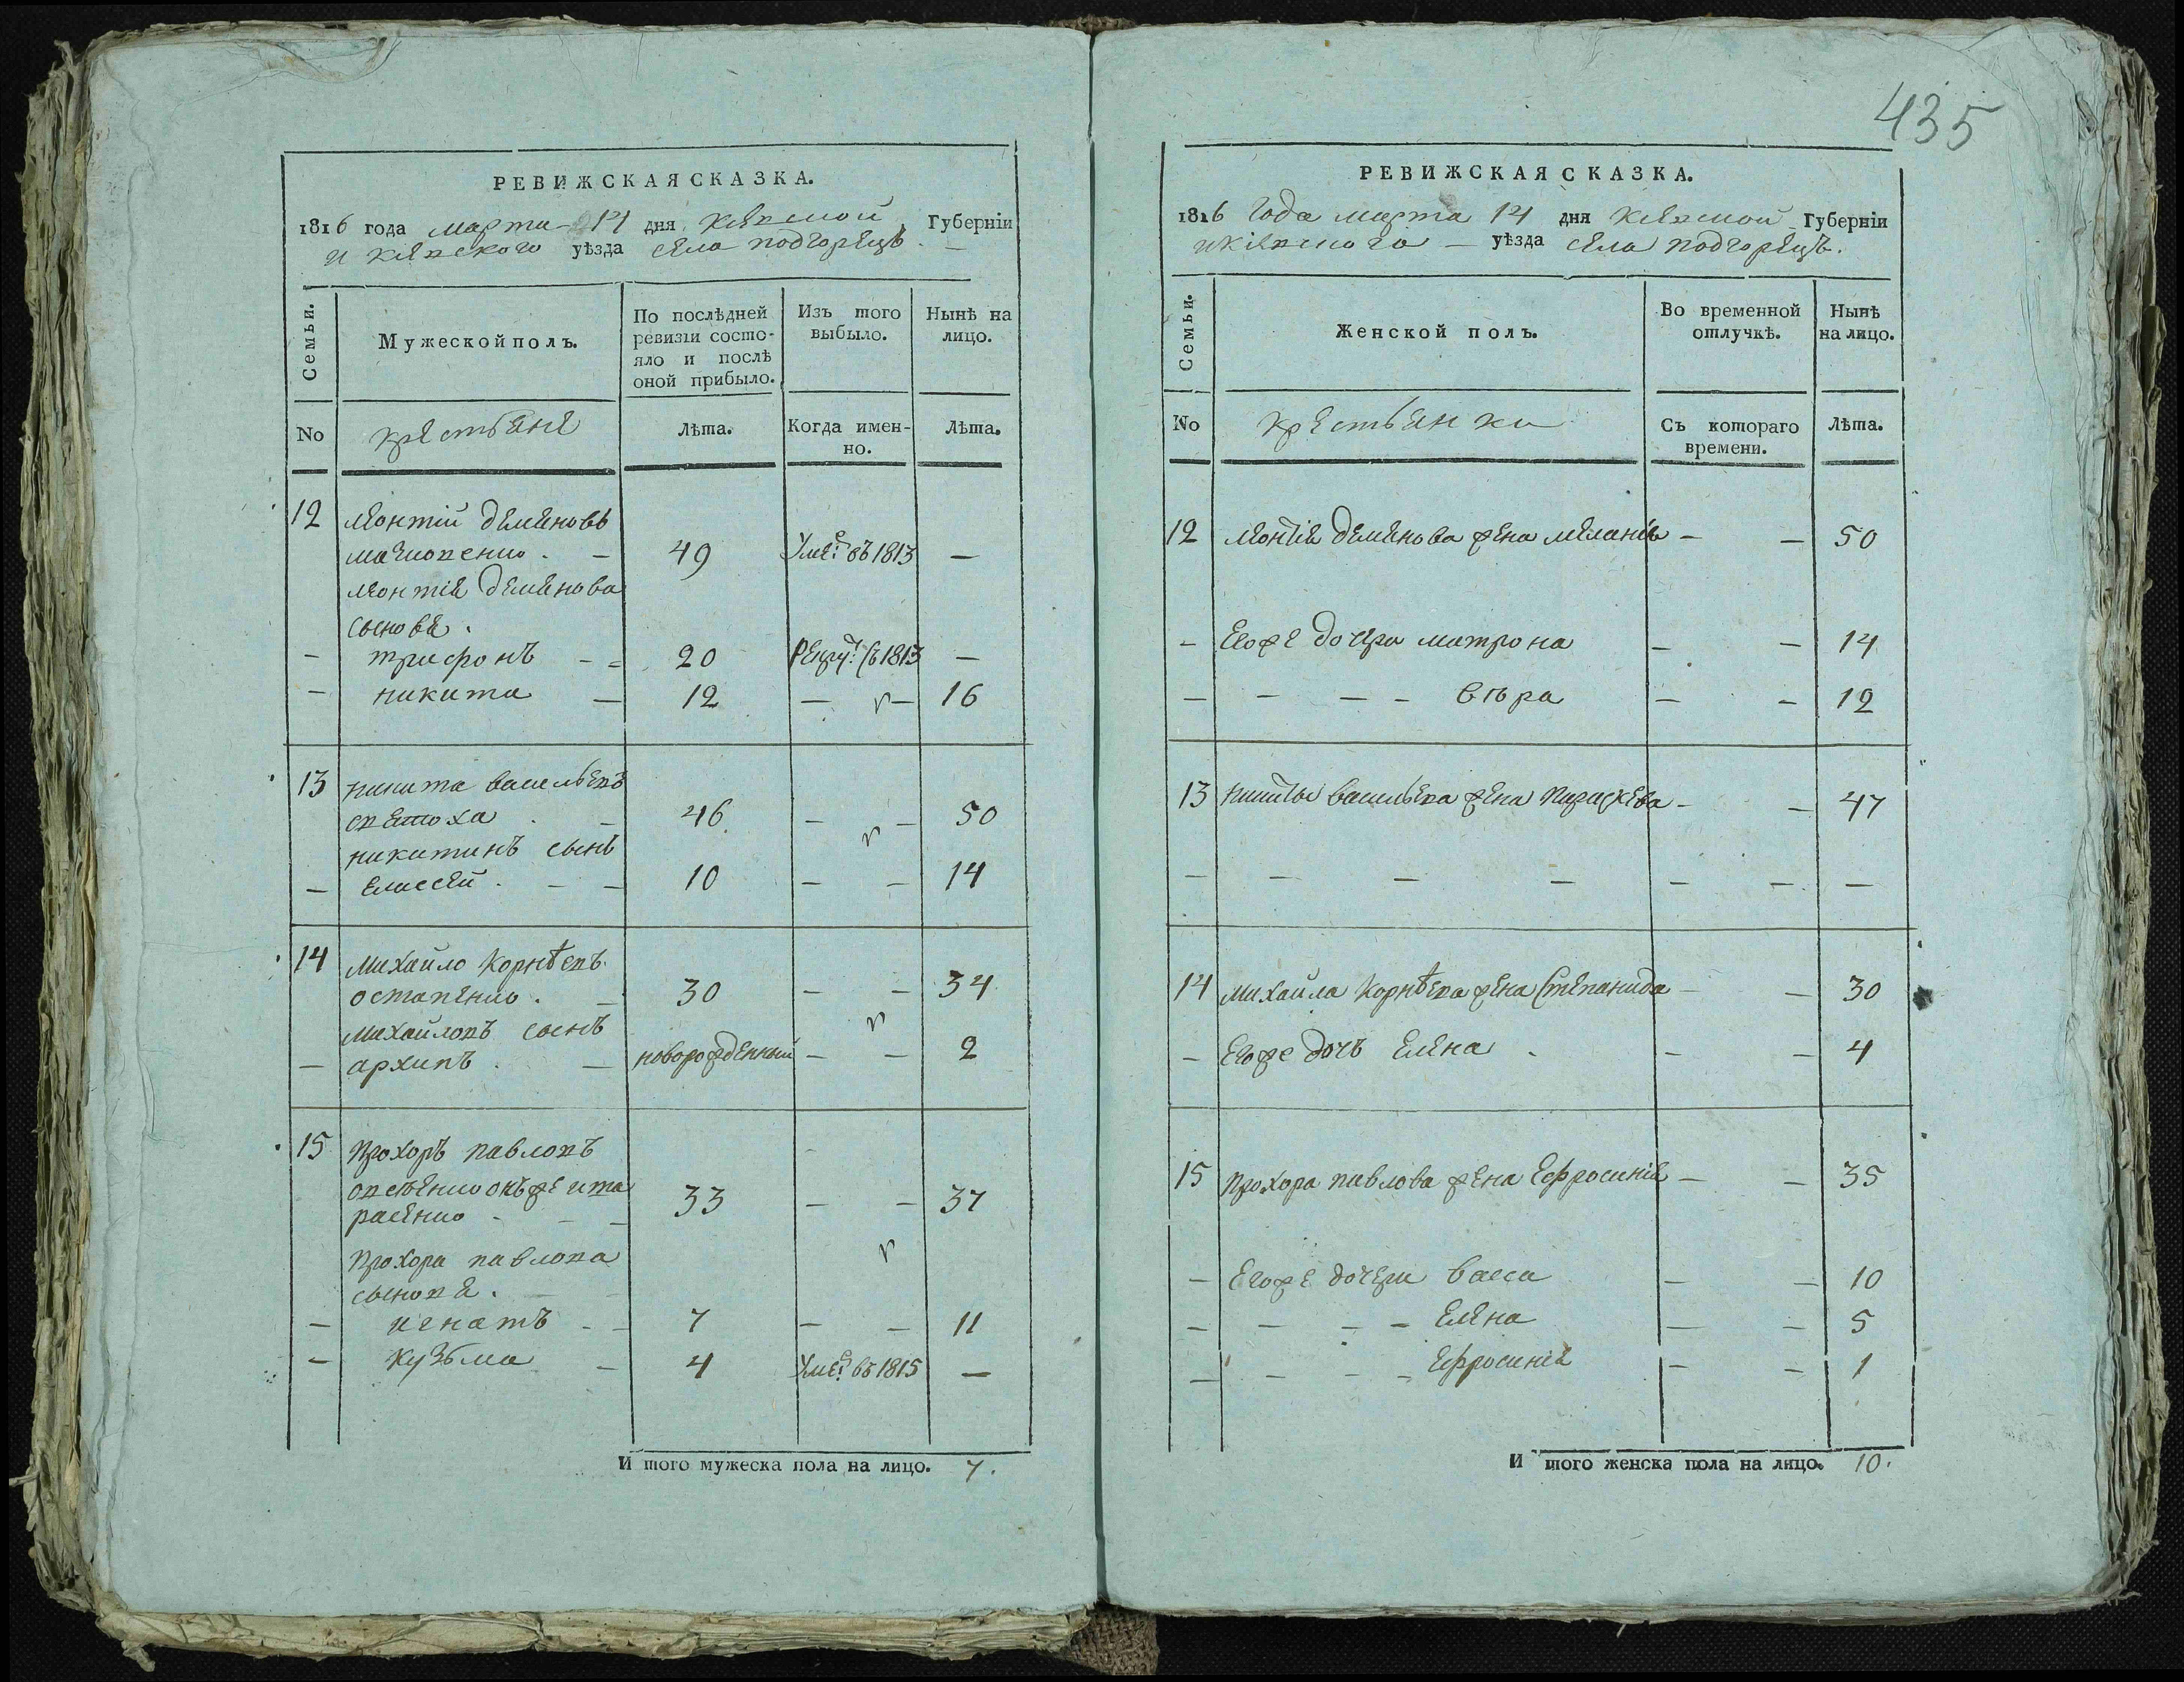 435
РЕВИЖСКАЯ СКАЗКА.
1816 года марта 14 дня Кіевской Губерніи
и Кіевского уѣзда села Подгорецъ.
Семьи.
Мужеской полъ.
По послѣдней
ревизіи состо-
яло и послѣ
оной прибыло.
Изъ того
выбыло.
Нынѣ на
лицо.
No
Крестьяне
Лѣта.
Когда имен-
но.
Лѣта.
12 Леонтій Деменовъ
49 Умеръ въ 1813 —
Леонтія Деменова
сыновья.
— Трифонъ — 20 Рекру: въ 1813 —
— Никита — 12 — — 16
13 Никита Васильевъ
46 — — 50
Никитинъ сынъ
— Елисей. — — 10 — — 14
14 Михайло Корнѣевъ
Остапенко. — 30 — — 34
Михайловъ сынъ
— Архипъ. — новорожденный — — 2
15 Прохоръ Павловъ
онъ же и Та
расенко — — 33 — — 37
Прохора Павлова
сыновья.
— Игнатъ — — 7 — — 11
— Кузьма — 4 Умеръ въ 1815 —
И того мужеска пола на лицо. 7.
РЕВИЖСКАЯ СКАЗКА.
1816 года марта 14 дня Кіевской Губерніи
и Кіевского — уѣзда села Подгорецъ.
Семьи.
Женской полъ.
Во временной
отлучкѣ.
Нынѣ
на лицо.
No
Крестьянки
Съ котораго
времени.
Лѣта.
12 Леонтія Деменова жена Меланія — — 50
— Егоже дочери Матрона — — 14
— — — — Вѣра — — 12
13 Никиты Васильева жена Параскева — — 47
— — — — — — —
14 Михайла Корнѣева жена Степанида — — 30
— Егоже дочь Елена. — — 4
15 Прохора Павлова жена Ефросинія — — 35
— Егоже дочери Васса — — 10
— — — — Елена — — 5
— — — — Ефросинія — — 1
И того женска пола на лицо. 10.